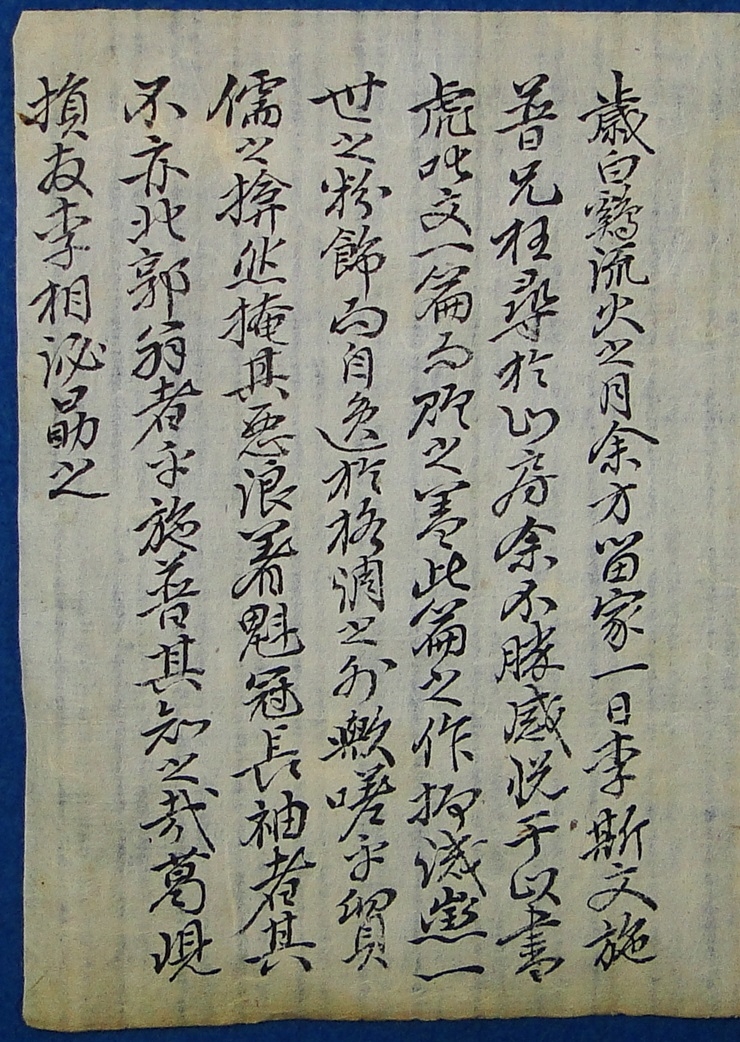 歲白鷄流火之月余方畱家一日李斯文施
普兄枉尋於山房余不勝感悅于以書
虎叱文一篇而贐之盖此篇之作抑譏一
世之粉飾而自逸於格調之外歟嗟乎
儒之揜然掩其惡浪着魁冠長袖者其
不亦北郭翁者乎施普其知之哉葛峴
損友李相泌勗之